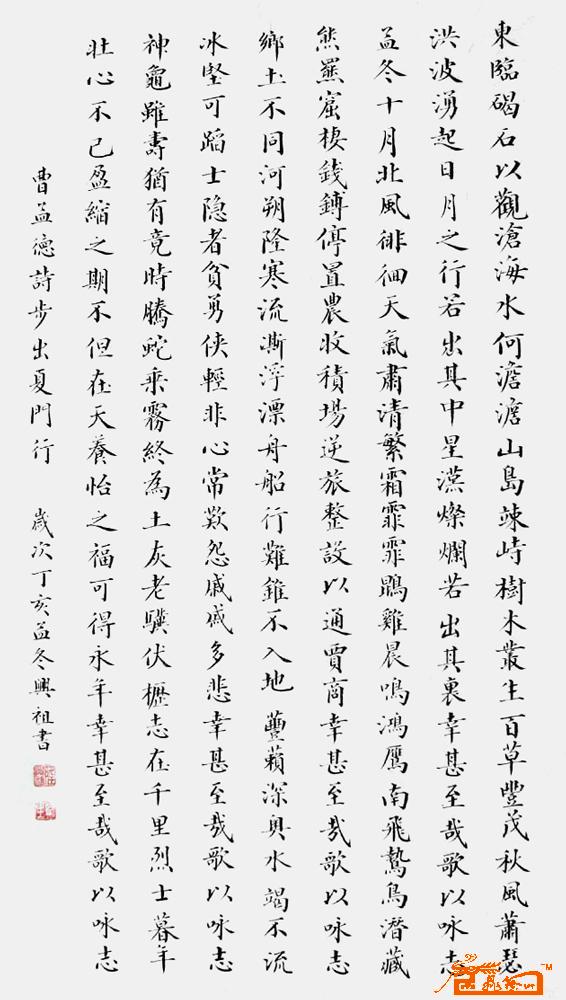 東臨碣石以觀滄海水何澹澹山島竦峙樹木叢生百草豐茂秋風蕭瑟
洪波湧起日月之行若出其中星漢燦爛若出其裏幸甚至哉歌以咏志
孟冬十月北風徘徊天氣肅清繁霜霏霏鵾雞晨鳴鴻鴈南飛鷙鳥潛藏
熊羆窟棲錢鎛停置農收積場逆旅整設以通賈商幸甚至哉歌以咏志
鄉土不同河朔隆寒流澌浮漂舟船行難錐不入地蘴藾深奧水竭不流
冰堅可蹈士隐者貧勇俠輕非心常歎怨戚戚多悲幸甚至哉歌以咏志
神龜雖壽猶有竟時騰蛇乘霧終為土灰老驥伏櫪志在千里烈士暮年
壯心不已盈縮之期不但在天養怡之福可得永年幸甚至哉歌以咏志
曹孟德詩步出夏門行 歲次丁亥孟冬興祖書